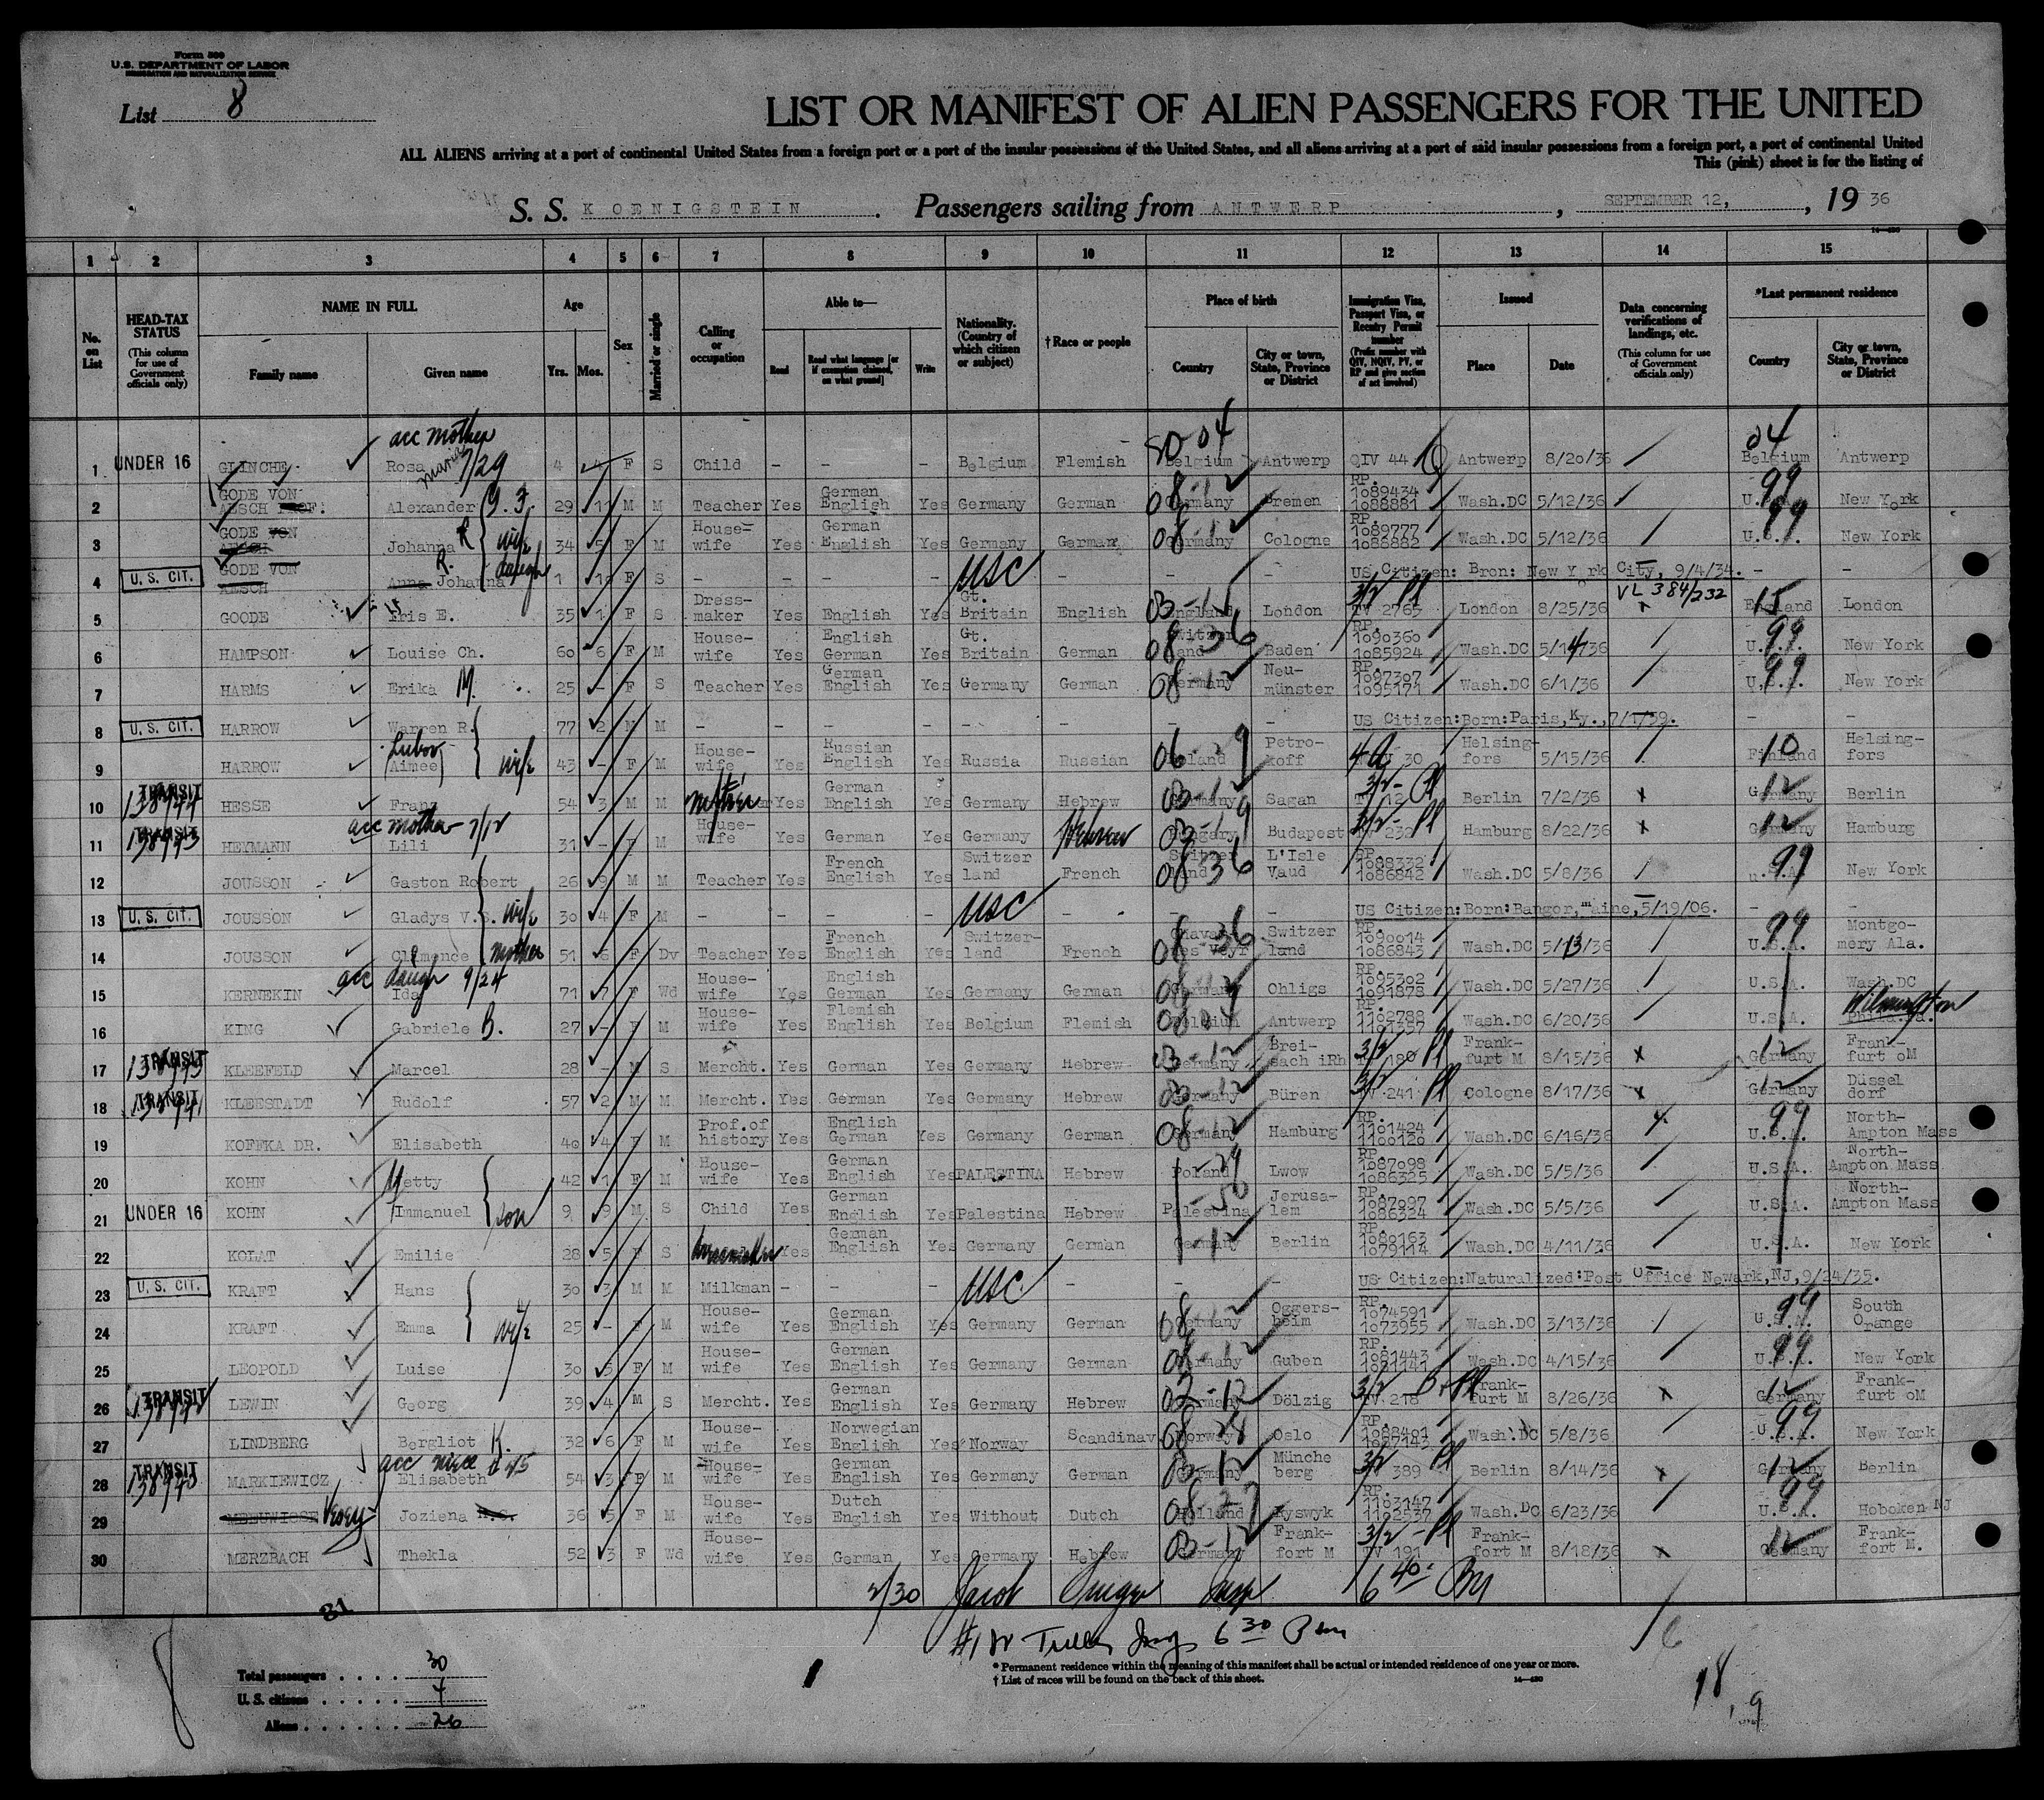 Form 500
U.S. DEPARTMENT OF LABOR
IMMIGRATION AND NATURALIZATION SERVICE
List 8
LIST OR MANIFEST OF ALIEN PASSENGERS FOR THE UNITED
ALL ALIENS arriving at a port of continental United States from a foreign port or a port of the insular possessions of the United States, and all aliens arriving at a port of said insular possessions from a foreign port, a port of continental United
This (pink) sheet is for the listing of
S. S. KOENIGSTEIN . Passengers sailing from ANTWERP , SEPTEMBER 12, , 19 36
1 2 3 4 5 6 7 8 9 10 11 12 13 14 15
No. on List
HEAD-TAX STATUS (This column for use of Government officials only)
NAME IN FULL Family name Given name
Age Yrs. Mos.
Sex
Married or single
Calling or occupation
Able to— Read Read what language [or if exemption claimed, on what ground] Write
Nationality. (Country of which citizen or subject)
† Race or people
Place of birth Country City or town, State, Province or District
Immigration Visa, Passport Visa, or Reentry Permit number (Prefix number with QIV, NQIV, PV, or RP and give section of act involved)
Issued Place Date
Data concerning verifications of landings, etc. (This column for use of Government officials only)
*Last permanent residence Country City or town, State, Province or District
acc mother
1 UNDER 16 GLINCHE Rosa Marie 7/29 4 4 F S Child - - - Belgium Flemish Belgium Antwerp QIV 44 Antwerp 8/20/36 Belgium Antwerp
2 GODE VON AESCH PROF. Alexander G.F. 29 11 M M Teacher Yes German English Yes Germany German Germany Bremen RP. 1089434 1088881 Wash.DC 5/12/36 U.S.A. New York
3 GODE VON AESCH Johanna R. wife 34 5 F M House-wife Yes German English Yes Germany German Germany Cologne RP. 1089777 1088882 Wash.DC 5/12/36 U.S.A. New York
4 U. S. CIT. GODE VON AESCH Anna Johanna R. daugh 1 F S - - - - USC - - - US Citizen: Bron: New York City, 9/4/34. - -
5 GOODE Iris E. 35 1 F S Dress-maker Yes English Yes Gt. Britain English England London TV 2765 London 8/25/36 VL 384/232 England London
6 HAMPSON Louise Ch. 60 6 F M House-wife Yes English German Yes Gt. Britain German Switzerland Baden RP. 1090360 1085924 Wash.DC 5/14/36 U.S.A. New York
7 HARMS Erika M. 25 - F S Teacher Yes German English Yes Germany German Germany Neu-münster RP. 1097307 1095171 Wash.DC 6/1/36 U.S.A. New York
8 U. S. CIT. HARROW Warren R. 77 2 M M - - - - - - - - US Citizen:Born:Paris,Ky.,7/1/59. - -
9 HARROW Aimee Lubov wife 43 - F M House-wife Yes Russian English Yes Russia Russian Poland Petro-koff 30 Helsing-fors 5/15/36 Finland Helsing-fors
10 TRANSIT HESSE Franz 54 3 M M Yes German English Yes Germany Hebrew Germany Sagan Berlin 7/2/36 Germany Berlin
acc mother 7/12
11 TRANSIT HEYMANN Lili 31 - F M House-wife Yes German Yes Germany Hebrew Hungary Budapest 232 Hamburg 8/22/36 Germany Hamburg
12 JOUSSON Gaston Robert 26 9 M M Teacher Yes French English Yes Switzerland French Switzerland L'Isle Vaud RP. 1088332 1086842 Wash.DC 5/8/36 U.S.A. New York
13 U. S. CIT. JOUSSON Gladys V.S. wife 30 4 F M - - - - USC - - - US Citizen:Born:Bangor,Maine,5/19/06. - -
14 JOUSSON Clémence mother 51 6 F Dv Teacher Yes French English Yes Switzer-land French Chavannes Veyr Switzerland RP. 1090014 1086843 Wash.DC 5/13/36 U.S.A. Montgo-mery Ala.
acc daugh 9/24
15 KERNEKIN Ida 71 7 F Wd House-wife Yes English German Yes Germany German Germany Ohligs RP. 1095302 1091878 Wash.DC 5/27/36 U.S.A. Wash.DC
16 KING Gabriele B. 27 - F M House-wife Yes Flemish English Yes Belgium Flemish Belgium Antwerp RP. 1102788 1101357 Wash.DC 6/20/36 U.S.A. Phila.Pa. Wilmington
17 TRANSIT KLEEFELD Marcel 28 - M S Mercht. Yes German Yes Germany Hebrew Germany Brei-sach iRh 180 Frank-furt M 8/15/36 Germany Frank-furt oM
18 TRANSIT KLEESTADT Rudolf 57 2 M M Mercht. Yes German Yes Germany Hebrew Germany Büren TV 241 Cologne 8/17/36 Germany Düssel dorf
19 KOFFKA DR. Elisabeth 40 4 F M Prof.of history Yes English German Yes Germany German Germany Hamburg RP. 1101424 1100120 Wash.DC 6/16/36 U.S.A. North-Ampton Mass
20 KOHN Hetty 42 1 F M House-wife Yes German English Yes PALESTINA Hebrew Poland Lwow RP. 1087098 1086325 Wash.DC 5/5/36 U.S.A. North-Ampton Mass
21 UNDER 16 KOHN Immanuel son 9 9 M S Child Yes German English Yes Palestina Hebrew Palestina Jerusa-lem RP. 1087097 1086324 Wash.DC 5/5/36 U.S.A. North-Ampton Mass
22 KOLAT Emilie 28 5 F S Yes German English Yes Germany German Germany Berlin RP. 1080163 1079114 Wash.DC 4/11/36 U.S.A. New York
23 U. S. CIT. KRAFT Hans 30 3 M M Milkman - - - USC - - - US Citizen:Naturalized:Post Office Newark,NJ,9/24/35.
24 KRAFT Emma wife 25 - F M House-wife Yes German English Yes Germany German Germany Oggers-heim RP. 1074591 1073955 Wash.DC 3/13/36 U.S.A. South Orange
25 LEOPOLD Luise 30 5 F M House-wife Yes German English Yes Germany German Germany Guben RP. 1081443 1081141 Wash.DC 4/15/36 U.S.A. New York
26 TRANSIT LEWIN Georg 39 4 M S Mercht. Yes German English Yes Germany Hebrew Germany Dölzig TV 218 Frank-furt M 8/26/36 Germany Frank-furt oM
27 LINDBERG Bergliot K. 32 6 F M House-wife Yes Norwegian English Yes Norway Scandinav. Norway Oslo RP. 1088401 1087143 Wash.DC 5/8/36 U.S.A. New York
acc niece
28 TRANSIT MARKIEWICZ Elisabeth 54 3 F M House-wife Yes German English Yes Germany German Germany Münche berg 389 Berlin 8/14/36 Germany Berlin
29 MEEUWISSE Joziena 36 5 F M House-wife Yes Dutch English Yes Without Dutch Holland Ryswyk RP. 1103147 1102537 Wash.DC 6/23/36 U.S.A. Hoboken NJ
30 MERZBACH Thekla 52 3 F Wd House-wife Yes German Yes Germany Hebrew Germany Frank-fort M TV 191 Frank-fort M 8/18/36 Germany Frank-fort M.
Jacob
81
Total passengers . . . . 30
U. S. citizens . . . . . 4
Aliens . . . . . . 26
* Permanent residence within the meaning of this manifest shall be actual or intended residence of one year or more.
† List of races will be found on the back of this sheet.
18
9